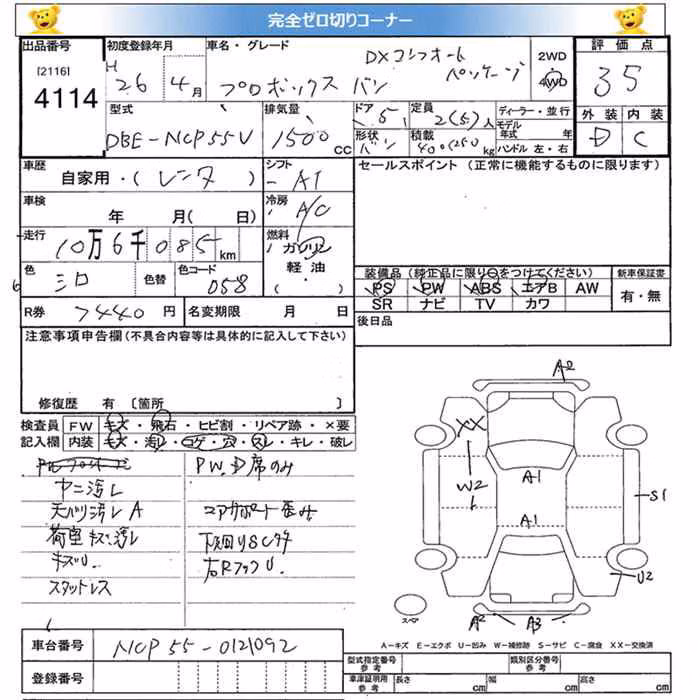 完全ゼロ切りコーナー
出品番号 初度登録年月 車名・グレード DX コンフォート パッケージ 2WD 評価点
[2116] H 26 4月 プロボックス バン 4WD 35
4114 型式 排気量 ドア 5 定員 2(5)人 ディーラー・並行 外装 内装
DBE-NCP55V 1500 CC 形状 バン 積載 400(250) kg モデル年式 年 ハンドル 左・右 D C
車歴 自家用・(レンタ) シフト AI セールスポイント (正常に機能するものに限ります)
車検 年 月( 日) 冷房 A/C
走行 10万6千085km 燃料 ガソリン 軽油 ( ・ )
色 シロ 色替 色コード 058 装備品(純正品に限り○をつけてください) 新車保証書
PS PW ABS エアB AW 有・無
SR ナビ TV カワ
R券 7440円 名変期限 月 日 後日品
注意事項申告欄(不具合内容等は具体的に記入して下さい)
修復歴 有 〔箇所 〕
検査員 FW キズ・飛石・ヒビ割・リペア跡・×要
記入欄 内装 キズ・汚レ・コゲ・穴・スレ・キレ・破レ
PW D席のみ
ヤニ汚レ
天バリ汚レ A コアサポート歪み
荷室キズ・汚レ 下廻りSCサ
キズU. 右RフックU.
スタットレス
A2
XX
W2
A1
S1
A1
U2
スペア
A2 A3
A-キズ E-エクボ U-凹み W-補修跡 S-サビ C-腐食 XX-交換済
車台番号 NCP55-0121092 型式指定番号 参考 類別区分番号 参考
登録番号 車庫証明用 参考 長さ cm 幅 cm 高さ cm